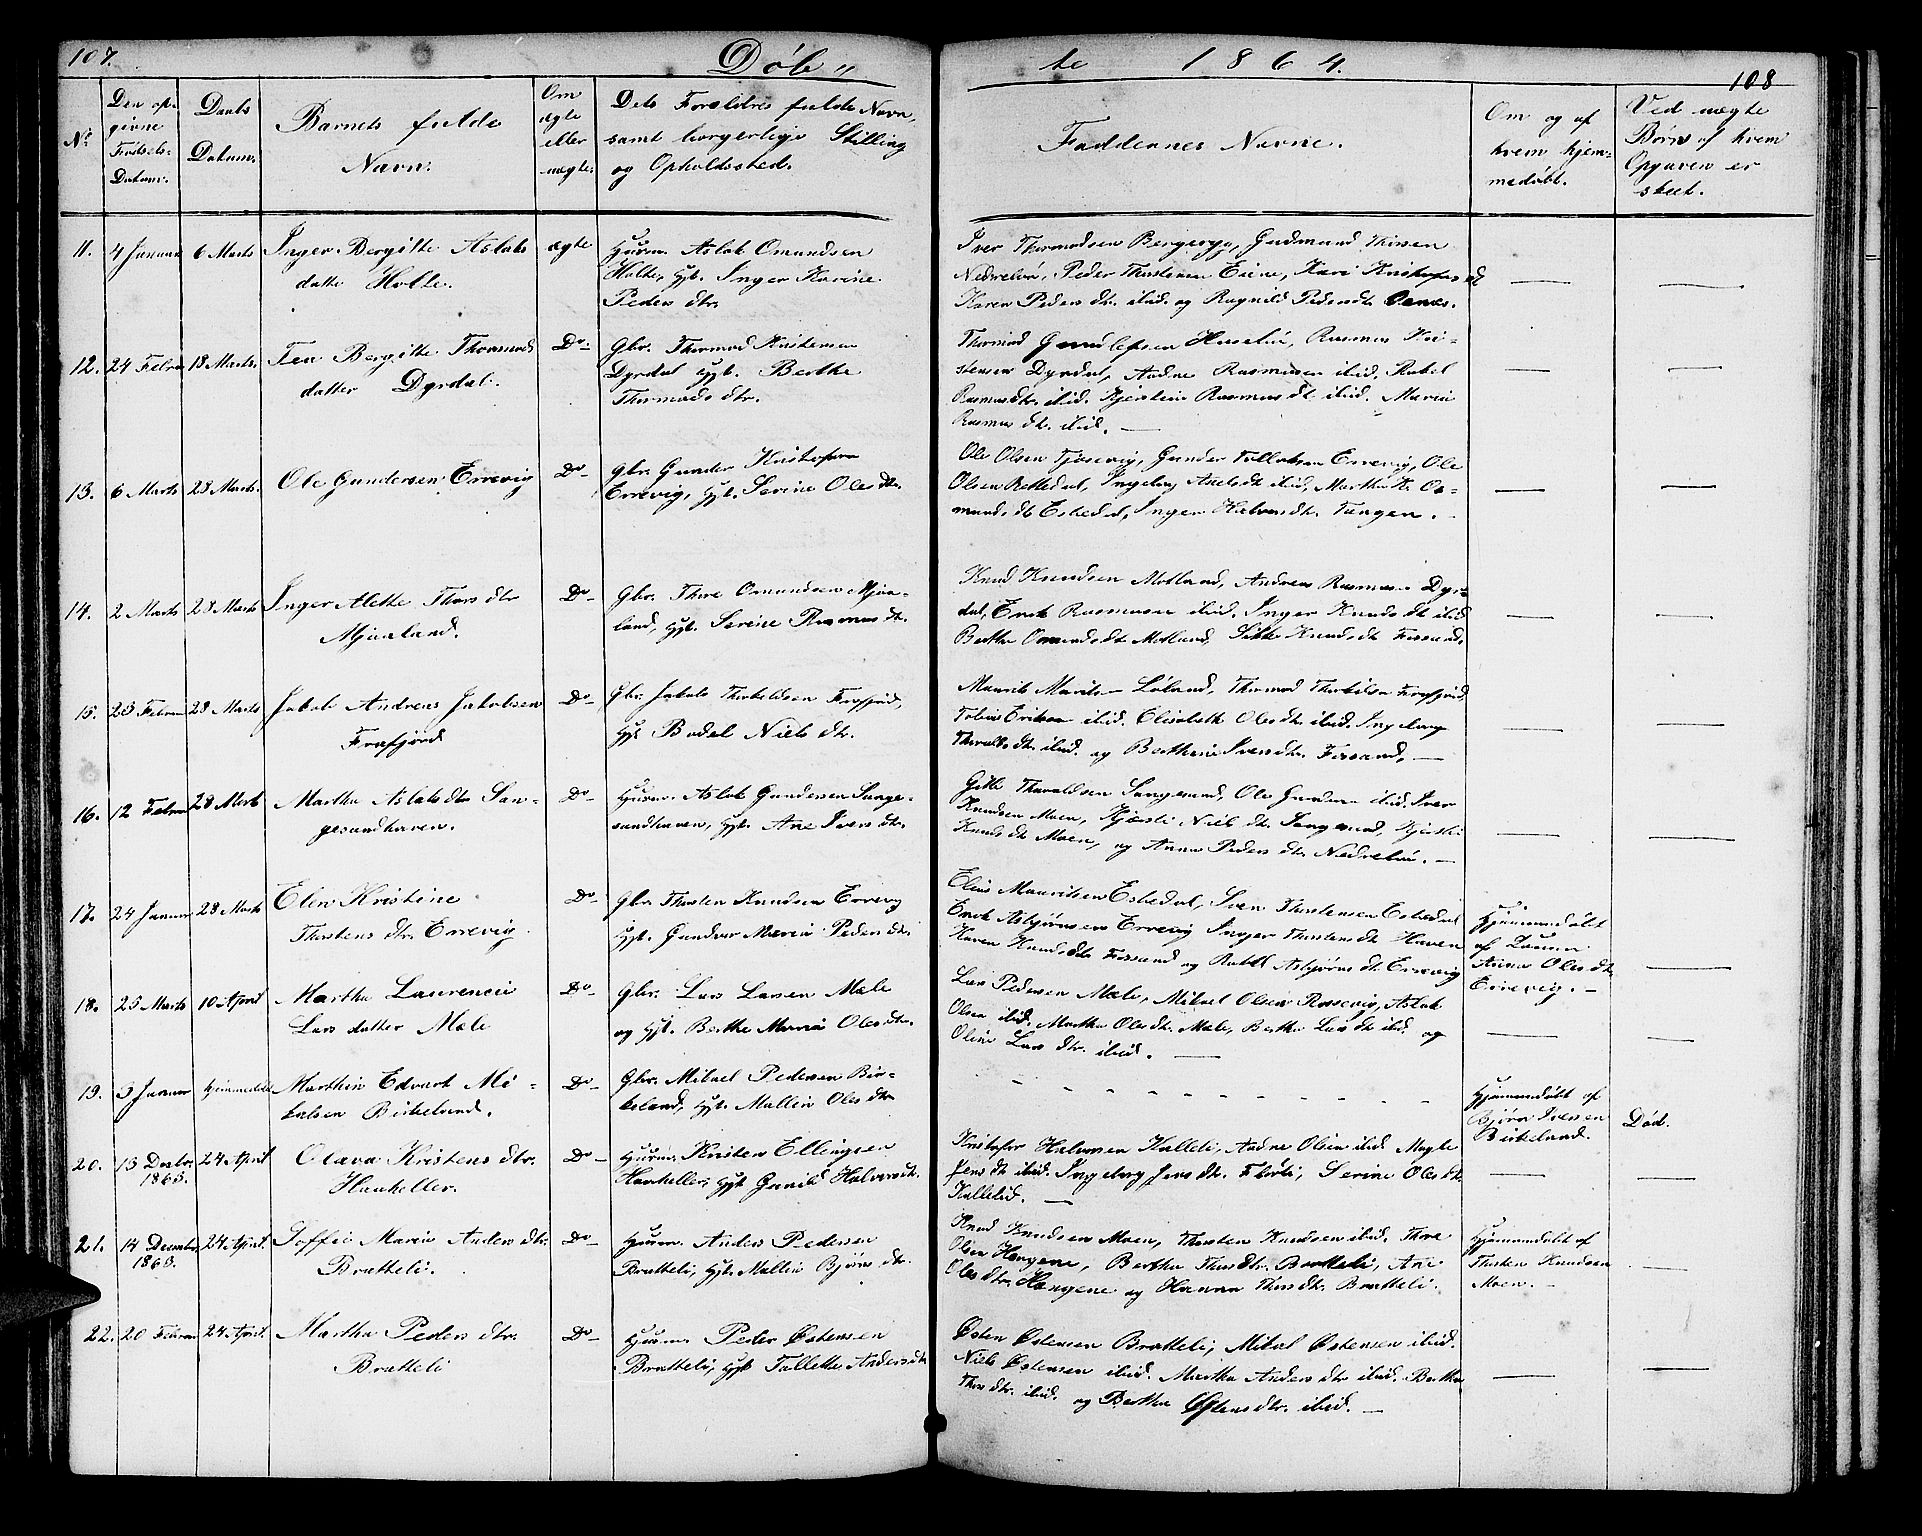 107.
Døb„
te 1864.
108
No
Den op-
givne
Fødsels-
Datum.
Daabs
Datum.
Barnets fulde
Navn.
Om
ægte
eller
uægte.
Dets Forældres fulde Navn,
samt borgerlige Stilling
og Opholdssted.
Faddernes Navne.
Om og af
hvem hjem-
medøbt.
Ved uægte
Børn af hvem
Opgaven er
skeet.
11. 4 Januar 6 Marts Inger Bergitte Aslaks
datter Holte.
ægte
Huusm. Aslak Omundsen
Holte, Hst. Inger Karine
Peders dtr.
Iver Thormodsen Bergeryg, Gudmund
Nedrebø, Peder Thorstensen Eiene, Kari
Karen Peders dt. ibid. og Ragnild Peders dt. Oanes.
12. 24 Febru 18 Marts. Tea Bergitte Thormods
datter Dyrdal.
Do
Gbr. Thormod Kristensen
Dyrdal Hst. Berthe
Thormods dtr.
Thormod Gundlefsen Rasmus Kri-
stensen Dyrdal, Andne Rasmusen ibid. Rakel
Rasmus dtr. ibid. Kjersten Rasmus dt ibid. Maria
Rasmus dt. ibid.
13. 6 Marts 28 Marts. Ole Gundersen Errevig
Do
Gbr. Gunder Kristofersen
Errevig, Hst. Serine Oles dtr.
Ole Olsen Tjosevig, Gunder Tollaksen Errevig, Ole
Olsen Rettedal, Ingeborg Axels dt ibid, Martha K. Os-
munds dt Eskedal, Inger Halvors dt. Tungen.
14. 2 Marts 28 Marts Inger Alette Thores dtr
Mjaaland.
Do
Gbr. Thore Omundsen Mjaa-
land, Hst. Serine Rasmus dt.
Knud Knudsen Motland, Andreas Rasmus- Dyr-
dal, Enok Rasmusen ibid. Inger Knuds dt ibid
Berthe Omunds dt Motland, Sitte Knuds dt Fossand.
15. 23 Febru 28 Marts Jakob Andreas Jakobsen
Frafjord
Do
Gbr. Jakob Thorkeldsen Frafjord,
Hst Bodel Niels dtr.
Maurits Maurits- Løland, Thormod Thorkilsen Frafjord,
Tobias Eriksen ibid. Elisabeth Oles dt. ibid. Ingeborg
Thoralds dt. ibid. og Berthine Svens dtr. Fossand.
16. 12 Febru 28 Marts Martha Aslaks dtr San-
gesandhaven.
Do
Huusm. Aslak Gundersen Sange-
sandhaven, Hst. Ane Ivers dtr.
Gitle Thoraldsen Sangesand, Ole Gunders- ibid. Iver
Knudsen Moen, Kjersti Niels dt. Sangesand, Kjersti
Knuds dt Moen, og Anna Peders dtr. Nedrebø.
17. 24 Januar 28 Marts Elen Kristine
Thorstens dtr. Errevig.
Do
Gbr. Thorsten Knudsen Errevig
Hst. Gundvor Maria Peders dtr.
Elias Mauritsen Eskedal, Sven Thorstensen Eskedal
Enok Asbjørnsen Errevig Inger Thorstens dt Haven
Karen Knuds dtr Fossand og Rakel Asbjørns dt. Errevig
Hjemmedøbt
af
Anna Oles dt.
Errevig.
18. 25 Marts 10 April Martha Laurencia
Lars datter Mæle
Do
Gbr. Lars Larsen Mæle
og Hst. Berthe Maria Oles dtr.
Lars Pedersen Mæle, Mikael Olsen Rossevig, Aslak
Olsen ibid. Martha Oles dt. Mæle, Bertha Lars dt ibid og
Oline Lars dtr. ibid.
19. 3 Januar Hjemmedøbt Marthin Edvart Mi-
kalsen Birkeland.
Do
Gbr. Mikael Pedersen Bir-
keland, Hst. Mallin Oles dtr
Hjemmedøbt af
Bjørn Iversen
Birkeland.
Død.
20. 13 Decbr. 1863. 24 April Olava Kristens dtr.
Haukeller.
Do
Huusm. Kristen Ellingsen
Haukeller, Hst Gunild Halvors dt.
Kristofer Halvorsen Kalleli, Andne Olsen ibid. Magle
Jens dt ibid. Ingeborg Jens dt. Flørli, Serine Oles dt.
Kallelid.
21. 14 Decembr 1863. 24 April. Soffie Maria Anders dtr.
Bratteli.
Do
Huusm. Anders Pedersen
Bratteli, Hst. Mallin Bjørns dtr.
Knud Knudsen Moen, Thorsten Knudsen ibid. Thore
Olsen Høngene, Bertha Thors dtr. Bratteli, Ane
Oles dtr. Høngene og Hanna Thors dt. Bratteli.
Hjemmedøbt af
Thorsten Knudsen
Moen.
22. 20 Februar 24 April. Martha Peders dtr.
Bratteli
Do
Huusm. Peder Østensen
Bratteli, Hst Tallette Anders dt
Østen Østensen Bratteli, Mikal Østensen ibid.
Niels Østensen ibid. Martha Anders dtr ibid. Bertha
Thors dtr. ibid. og Bertha Østens dtr. ibid.